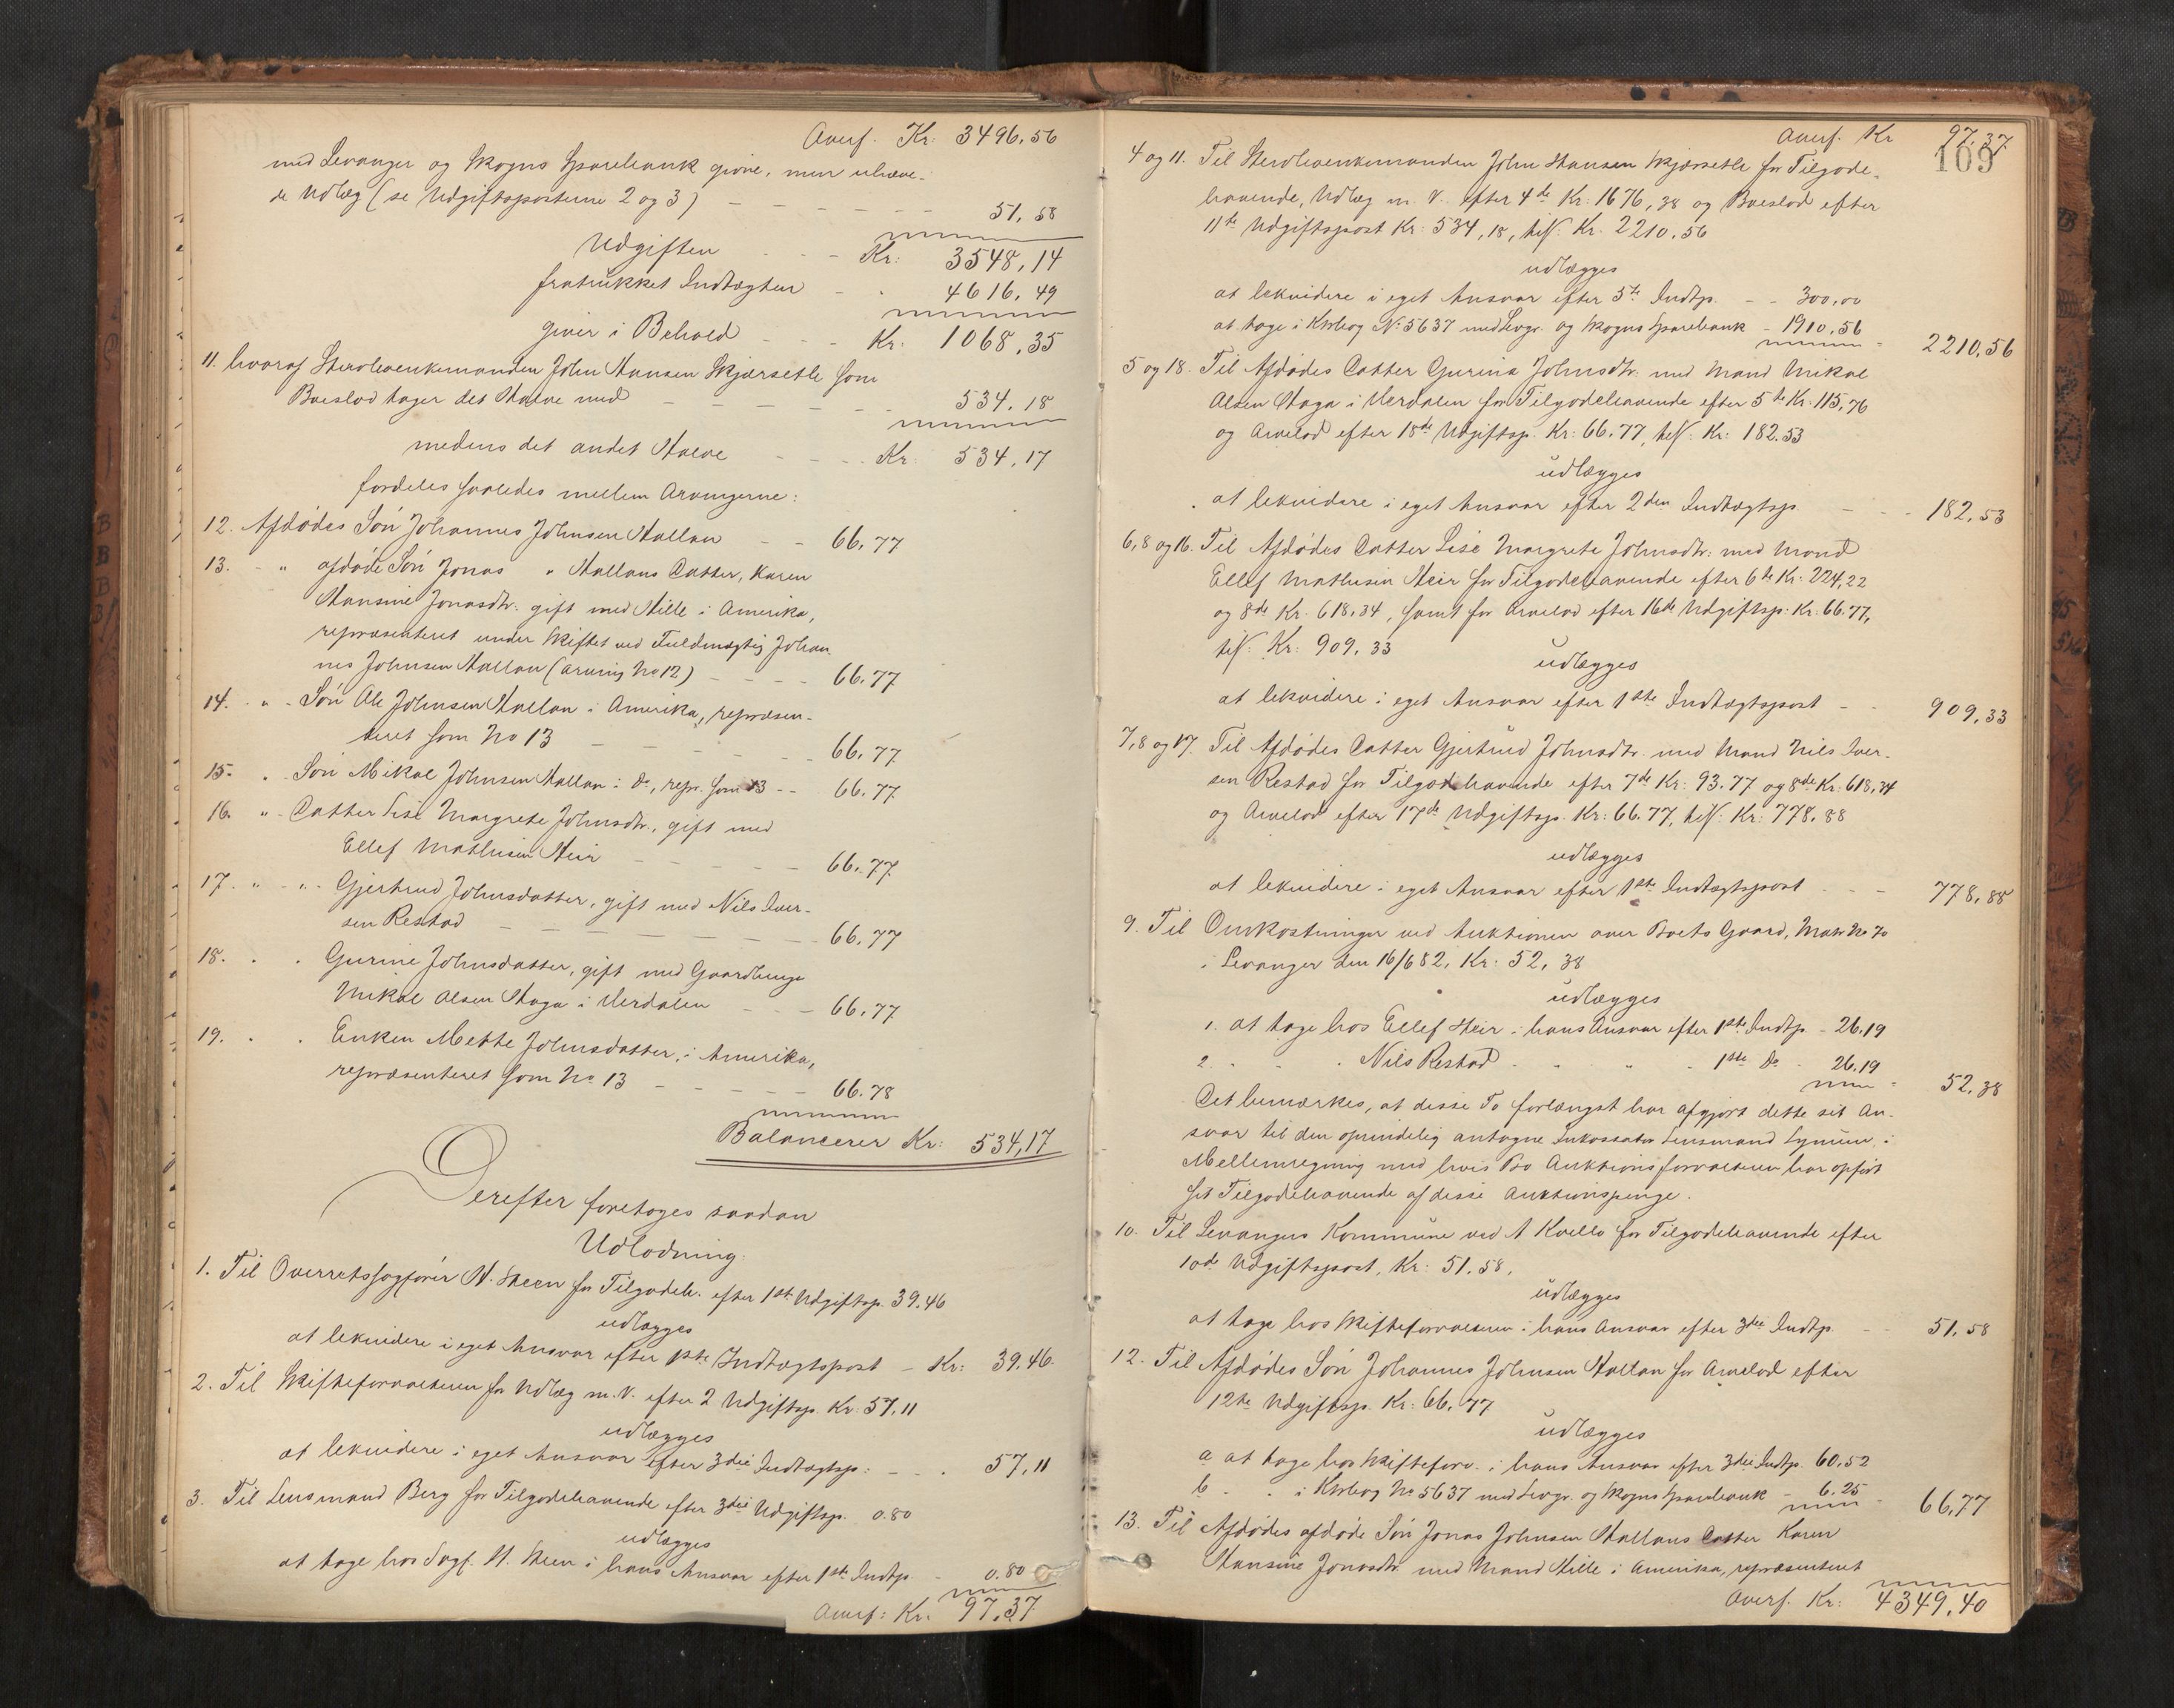 Overf. Kr: 3496,56
med Levanger og Skogns Sparebank givne, men uhæve-
de Udlæg (se Udgiftsposterne 2 og 3) 51,58
Udgiften Kr: 3548,14
fratrukket Indtægten 4616,49
giver i Behold Kr: 1068,35
11. hvoraf Sterbøenkemanden John Hansen Skjærsetle som
Boeslod tager det Halve med 534,18
medens det andet Halve Kr: 534,17
fordeles saaledes mellem Arvingerne:
12. Afdødes Søn Johannes Johnsen Hallan 66,77
13. " afdøde Søn Jonas " Hallans Datter, Karen
Hansine Jonasdtr. gift med Hille i Amerika,
repræsenteret under Skiftet ved Fuldmægtig Johan-
nes Johnsen Hallan (Arving No 12) 66,77
14. " Søn Ole Johnsen Hallan i Amerika, repræsen-
teret som No 13 66,77
15. " Søn Mikal Johnsen Hallan i do, repr. som 13 66,77
16. " Datter Lise Margrete Johnsdtr., gift med
Ellef Mathisen Heir 66,77
17. " " Gjertrud Johnsdatter, gift med Nils Iver-
sen Restad 66,77
18. Gurine Johnsdatter, gift med Gaardbruger
Mikal Olsen Haga i Værdalen 66,77
19. Enken Mette Johnsdatter, i Amerika,
repræsenteret som No 13 66,78
Balancerer Kr: 534,17
Derefter foretoges saadan
Udlodning:
1. Til Overretssagfører N. Steen for Tilgodeh. efter 1ste Udgiftsp. 39,46
udlægges
at lekvidere i eget Ansvar efter 1ste Indtægtspost Kr: 39,46.
2. Til Skifteforvalteren for Udlæg m.V. efter 2 Udgiftsp. Kr: 57,11
udlægges
at lekvidere i eget Ansvar efter 3die Indtægtsp: 57,11
3. Til Lensmand Berg for Tilgodehavende efter 3die Udgiftsp. 0.80
udlægges
at tage hos Sagf. N. Steen i hans Ansvar efter 1ste Indtp. 0.80
Overf: Kr. 97,37
Overf. Kr 97,37
109
4 og 11. Til Sterbøenkemanden John Hansen Skjærsetle for Tilgode-
havende, Udlæg m.V. efter 4de Kr: 1676,38 og Boeslod efter
11te Udgiftspost Kr: 534,18, till: Kr. 2210,56
udlægges
at lekvidere i eget Ansvar efter 5te Indtp. 300,00
at tage i Kvbog No 5637 med Levgr. og Skogns Sparebank 1910,56
2210,56
5 og 18. Til Afdødes Datter Gurina Johnsdtr. med Mand Mikal
Olsen Haga i Værdalen for Tilgodehavende efter 5te Kr: 115,76
og Arvelod efter 18de Udgiftsp. Kr: 66.77, till: Kr: 182.53
udlægges
at lekvidere i eget Ansvar efter 2den Indtægtsp. 182,53
6, 8 og 16. Til Afdødes Datter Lise Margrete Johnsdtr. med Mand
Ellef Mathisen Heir for Tilgodehavende efter 6te Kr: 224,22
og 8de Kr. 618,34, samt for Arvelod efter 16de Udgiftsp: Kr: 66.77,
till: Kr: 909,33
udlægges
at lekvidere i eget Ansvar efter 1ste Indtægtspost 909,33
7, 8 og 17. Til Afdødes Datter Gjertrud Johnsdtr. med Mand Nils Iver-
sen Restad for Tilgodehavende efter 7de Kr: 93.77 og 8de Kr: 618,34
og Arvelod efter 17de Udgiftsp. Kr: 66.77, till: Kr: 778,88
udlægges
at lekvidere i eget Ansvar efter 1ste Indtægtspost 778,88
9. Til Omkostninger ved Auktionen over Boets Gaard, Matr No 70
i Levanger den 16/6 82, Kr: 52,38
udlægges
1. at tage hos Ellef Heir i hans Ansvar efter 1ste Indtp 26,19
2 " " Nils Restad " " 1ste do 26,19
52,38
Det bemærkes, at disse To forlængst har afgjort dette sit An-
svar til den oprindelig antagne Inkassator Lensmand Lynum, i
Mellemregning med hvis Bo Auktionsforvalteren har opført
sit Tilgodehavende af disse Auktionspenge.
10. Til Levangers Kommune ved A Kvello for Tilgodehavende efter
10de Udgiftspost, Kr: 51.58,
udlægges
at tage hos Skifteforvalteren i hans Ansvar efter 3die Indtp. 51,58
12. Til Afdødes Søn Johannes Johnsen Hallan for Arvelod efter
12te Udgiftsp. Kr: 66,77
udlægges
a at tage hos Skifteforv. i hans Ansvar efter 3die Indtp. 60,52
b " " i Kvbog No 5637 med Levgr. og Skogns Sparebank 6.25
66,77
13. Til Afdødes afdøde Søn Jonas Johnsen Hallans Datter Karen
Hansine Jonasdtr. med Mand Hille i Amerika, repræsenteret
Overf. Kr: 4349,40